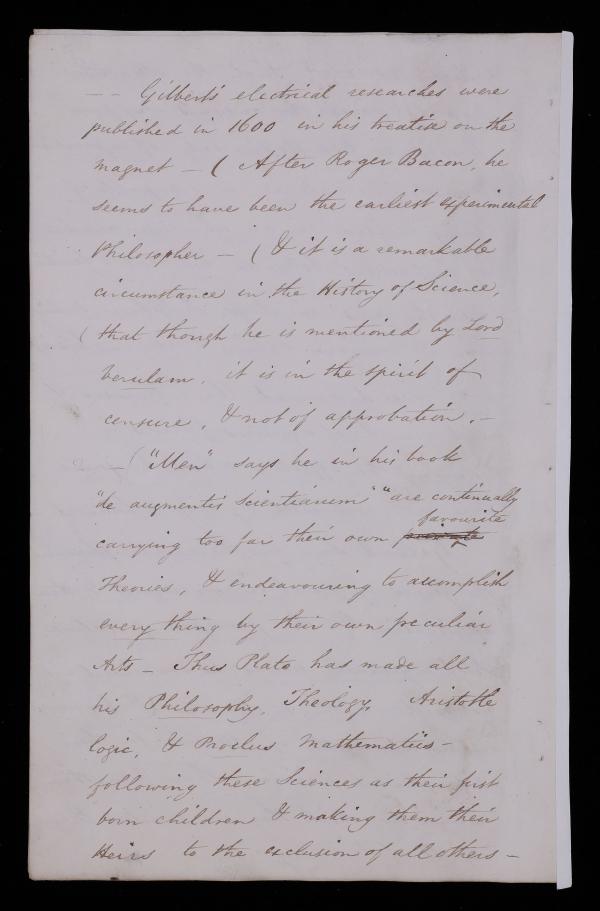 -- Gilbert's electrical researches were
published in 1600 in his treatise on the
magnet - ( After Roger Bacon, he
seems to have been the earliest experimental
Philosopher - ( & it is a remarkable
circumstance in the History of Science,
( that though he is mentioned by Lord
Verulam, it is in the spirit of
censure, & not of approbation. -
- ( "Men" says he in his book
"de augmentis Scientiarum" "are continually
favourite
carrying too far their own private
Theories, & endeavouring to accomplish
every thing by their own peculiar
Arts - Thus Plato has made all
his Philosophy, Theology, Aristotle
logic, & Proclus Mathematics -
following these Sciences as their first
born children & making them their
Heirs to the exclusion of all others -